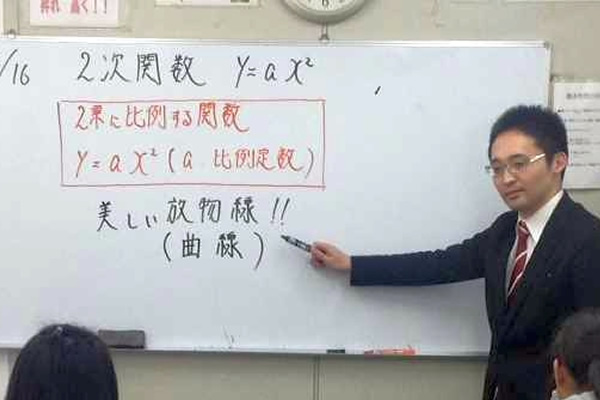 /16 2次関数 y=ax²
2乗に比例する関数
y=ax²(a 比例定数)
美しい放物線!!
(曲線)